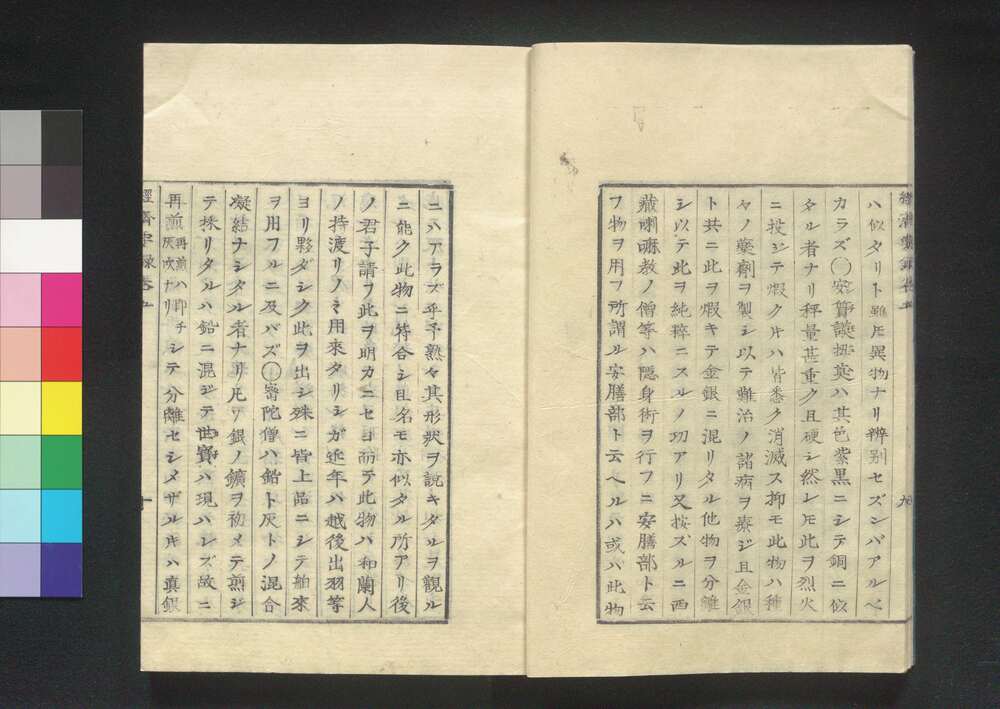 ハ似タリト雖𪜈異物ナリ辨别セズンバアルベ
カラズ○安質謨掦英ハ其色紫黒ニシテ銅ニ似
タル者ナリ秤量甚重ク且硬シ然レ𪜈此ヲ烈火
ニ投ジテ煆ク𪜈ハ皆悉ク消滅ス抑モ此物ハ種
々ノ藥劑ヲ製シ以テ難治ノ諸病ヲ療ジ且金銀
ト共ニ此ヲ煆キテ金銀ニ混リタル他物ヲ分離
シ以テ此ヲ純粹ニスルノ功アリ又按ズルニ西
藏喇嘛教ノ僧等ハ隠身術ヲ行フニ安膳部ト云
フ物ヲ用フ所謂ル安膳部ト云ヘルハ或ハ此物
ニハアラズ乎予熟々其形狀ヲ説キタルヲ觀ル
ニ能ク此物ニ符合シ且名モ亦似タル所アリ後
ノ君子請フ此ヲ明カニセヨ而テ此物ハ和蘭人
ノ持渡リノミ用來タリシガ近年ハ越後出羽等
ヨリ夥ダシク此ヲ出シ殊ニ皆上品ニシテ舶來
ヲ用フルニ及バズ○密陀僧ハ鉛ト灰トノ混合
凝結ナシタル者ナリ凡ソ銀ノ鑛ヲ初メテ煎ジ
テ採リタルハ鉛ニ混ジテ世寶ハ現ハレズ故ニ
再煎再煎ハ即チ灰吹ナリシテ分離セシメザル𪜈ハ眞銀